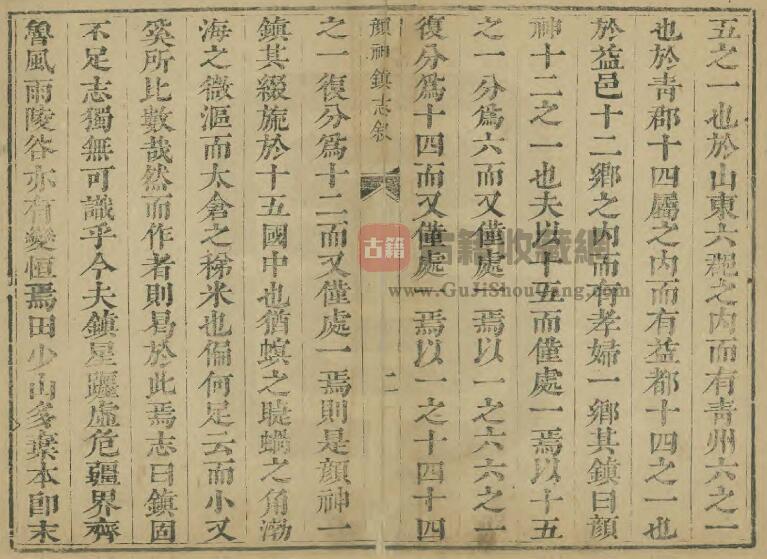 五之一也於山東六郡之內而有靑州六之一
也於靑郡十四屬之內而有益都十四之一也
於益邑十二鄉之內而有孝婦一鄉其鎮曰顏
神十二之一也夫以十五而僅處一焉以十五
之一分爲六而又僅處一焉以一之六六之一
復分爲十四而又僅處一焉以一之十四十四
顏神鎮志敘
二
之一復分爲十二而又僅處一焉則是顏神一
鎮其綴旒於十五國中也猶螟之睫蝸之角渤
海之微漚而太倉之稊米也偏何足云而小又
奚所比數哉然而作者則曷於此焉志曰鎮固
不足志獨無可識乎今夫鎮星躔虛危疆界齊
魯風雨陵谷亦有變恒焉田少山多棄本卽末
古籍
古籍收藏網
www.GuJiShouCang.com